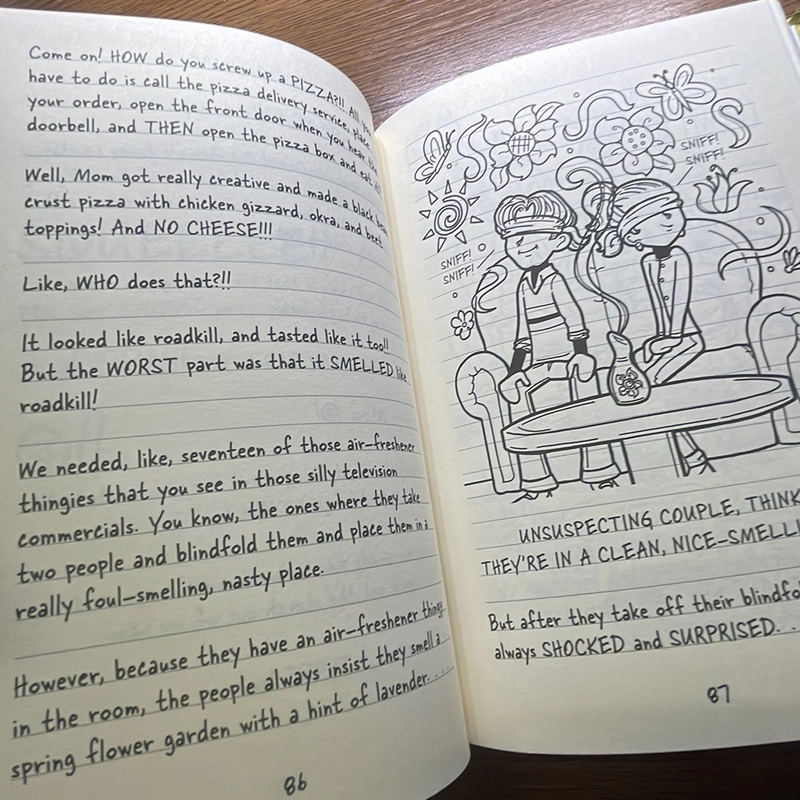 Come on! HOW do you screw up a PIZZA?!! All you
have to do is call the pizza delivery service, place
your order, open the front door when you hear the
doorbell, and THEN open the pizza box and eat it!
Well, Mom got really creative and made a black bean
crust pizza with chicken gizzard, okra, and beet
toppings! And NO CHEESE!!!
Like, WHO does that?!!
It looked like roadkill, and tasted like it too!!
But the WORST part was that it SMELLED like
roadkill!
We needed, like, seventeen of those air-freshener
thingies that you see in those silly television
commercials. You know, the ones where they take
two people and blindfold them and place them in a
really foul-smelling, nasty place.
However, because they have an air-freshener thingy
in the room, the people always insist they smell a
spring flower garden with a hint of lavender. . . .
86
SNIFF!
SNIFF!
SNIFF!
SNIFF!
UNSUSPECTING COUPLE,
THEY'RE IN A CLEAN,
But after they take off their
always SHOCKED and SURPRISED. . .
87